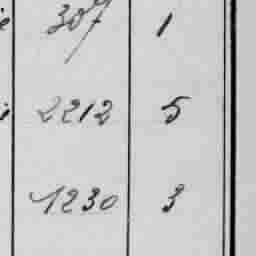 307 1
2212 5
1230 3